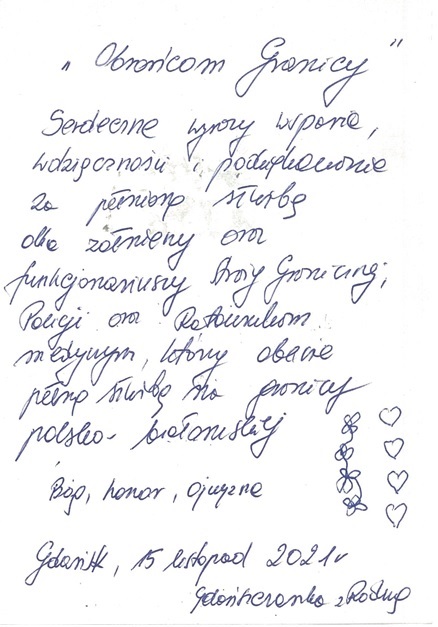 „Obrońcom Granicy"
Serdeczne wyrazy wsparcia,
wdzięczności i podziękowania
za pełnioną służbę
dla żołnierzy oraz
funkcjonariuszy Straży Granicznej,
Policji oraz Ratownikom
medycznym, którzy obecnie
pełnią służbę na granicy
polsko-białoruskiej
Bóg, honor, ojczyzna
Gdańsk, 15 listopad 2021 r
Gdańszczanka z Rodziną